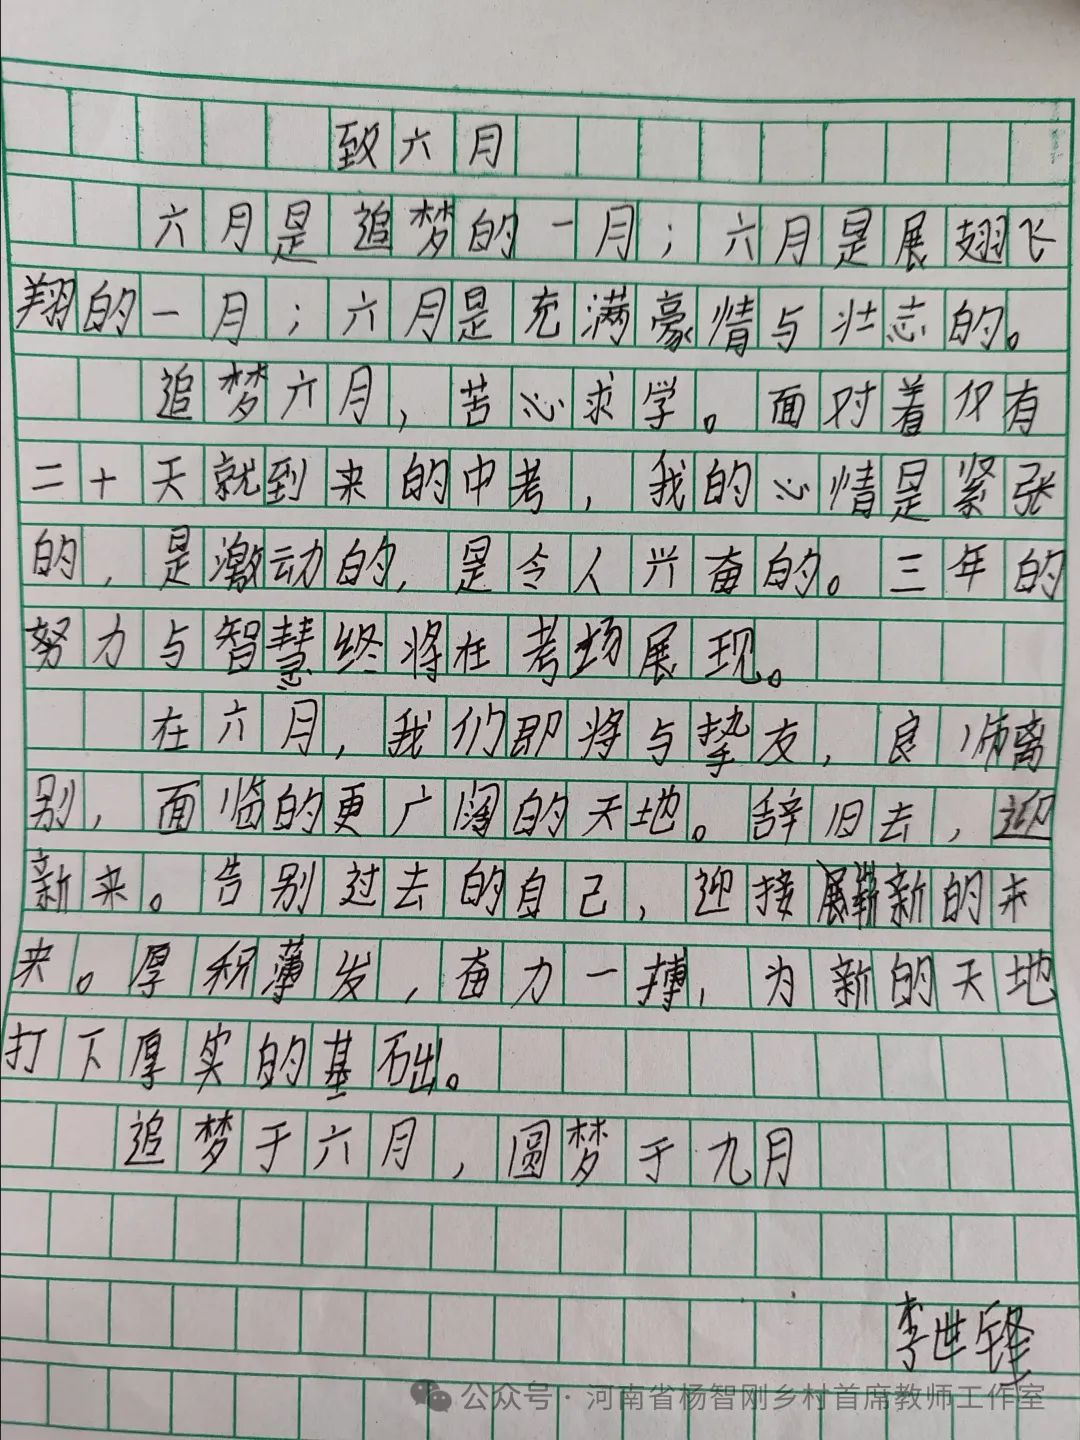 致六月
六月是追梦的一月；六月是展翅飞
翔的一月；六月是充满豪情与壮志的。
追梦六月，苦心求学。面对着仅有
二十天就到来的中考，我的心情是紧张
的，是激动的，是令人兴奋的。三年的
努力与智慧终将在考场展现。
在六月，我们即将与挚友，良师离
别，面临的更广阔的天地。辞旧去，迎
新来。告别过去的自己，迎接展崭新的未
来。厚积薄发，奋力一搏，为新的天地
打下厚实的基础。
追梦于六月，圆梦于九月
李世锋
公众号·河南省杨智刚乡村首席教师工作室